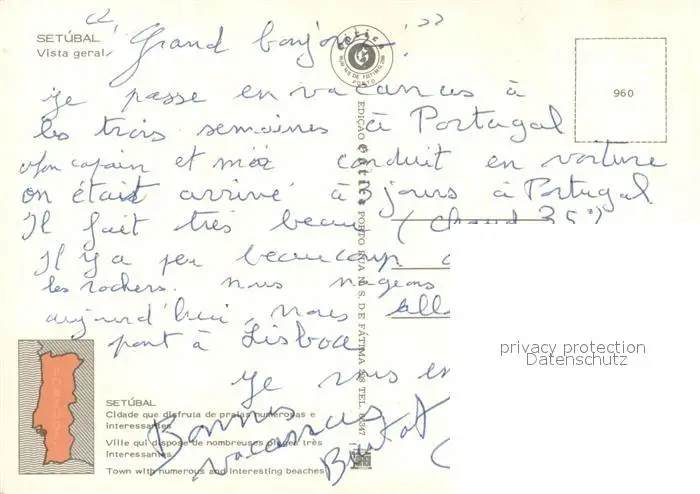 SETÚBAL
Vista geral
" Grand bonjour ! "
960
Je passe en vacances à
les trois semaines à Portugal
Mon copain et moi conduit en voiture
on était arrivé à 3 jours à Portugal
Il fait très beau (chaud 35°)
Il y a peu beaucoup
les rochers. nous nageons
aujourd'hui, nous all
pont à Lisboa
Je vous en
Bonnes
vacances
EDIÇÃO PORTO RUA N. S. DE FÁTIMA, 388 TEL.
PORTO
privacy protection
Datenschutz
SETÚBAL
Cidade que disfruta de praias numerosas e
interessantes
Ville qui dispose de nombreuses plages très
interessantes
Town with numerous and interesting beaches